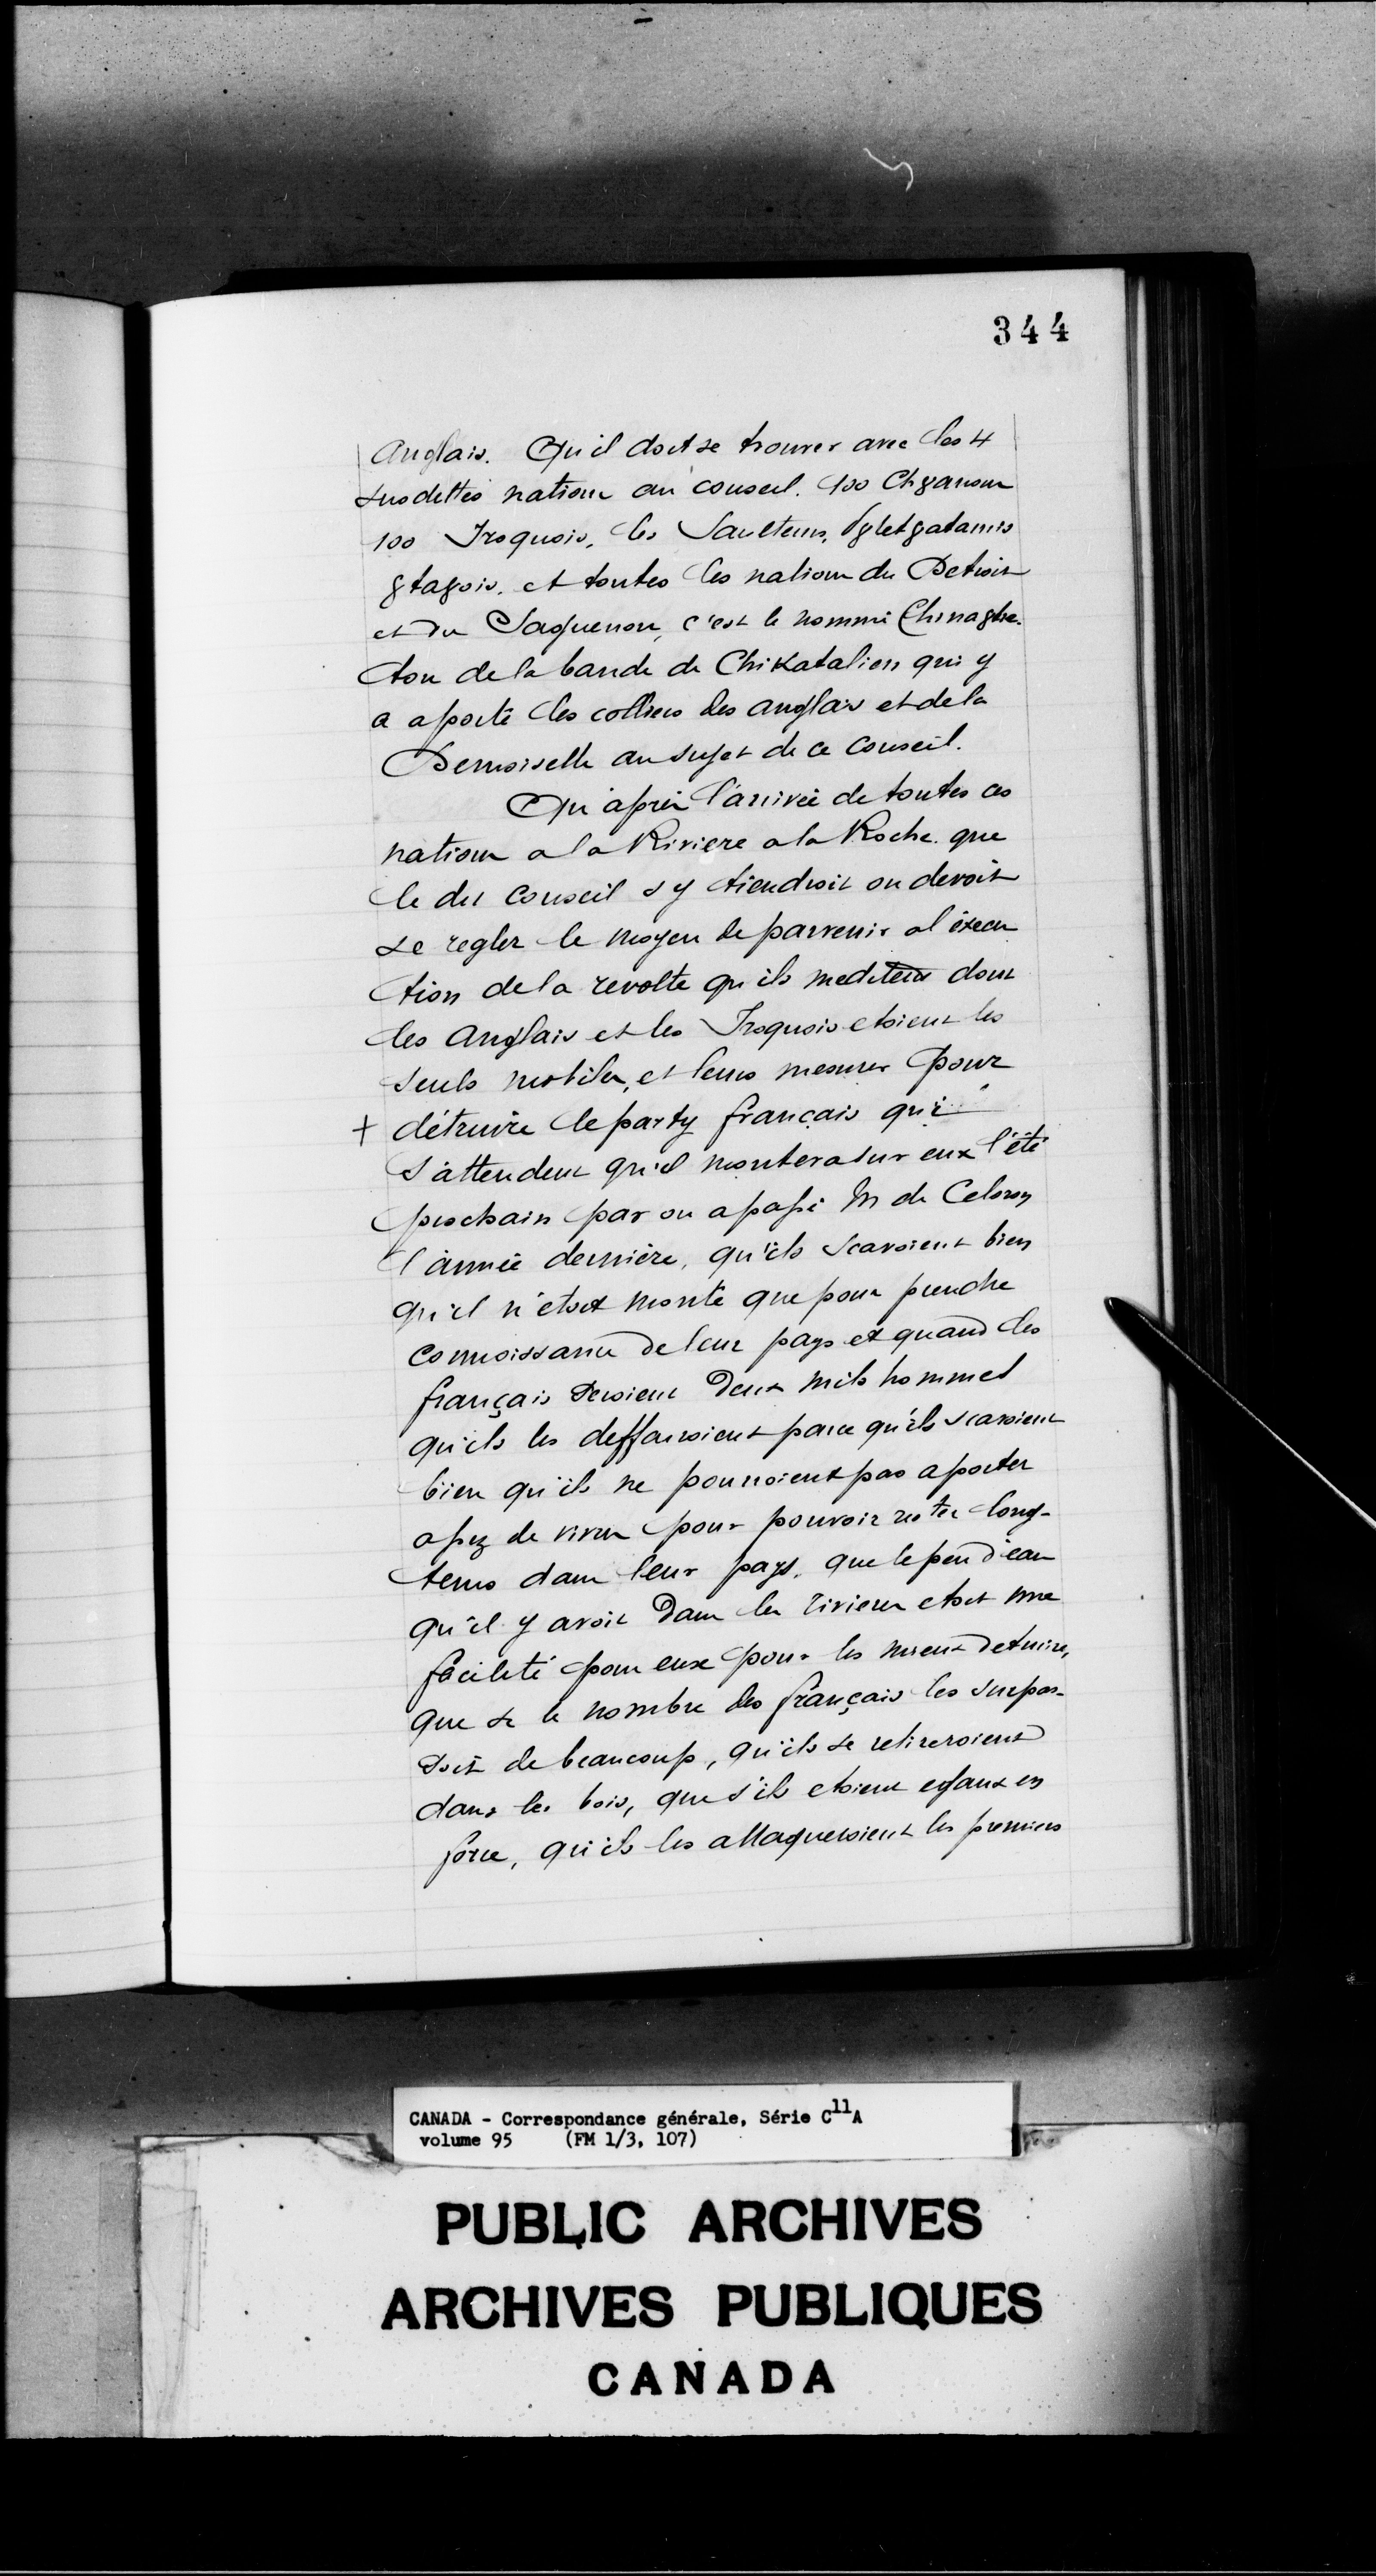 344
Anglais. Qu'il doit se trouver avec les 4
susdittes nations au conseil. 100 Ch8anons
100 Iroquois, les Saulteurs, 
8ta8ois, et toutes les nations du Detroit
et du Saguenon, c'est le nommé
ton de la bande de Chikatalien qui y
a aporté les colliers des anglais et de la
Demoiselle au sujet de ce conseil.
Qu'après l'arrivée de toutes ces
nations a la Riviere a la Roche que
le dit conseil s'y tiendroit on devoit
se regler le moyen de parvenir a l'éxecu
tion de la revolte qu'ils meditent dont
les Anglais et les Iroquois etoient les
seuls mobiles, et leurs mesures pour
+ détruire le party français qui
s'attendent qu'il montera sur eux l'été
prochain par ou a passé M de Celoron
l'année dernière, qu'ils scavoient bien
qu'il n'etoit monté que pour prendre
connoissance de leur pays et quand les
français seroient deux mils hommes
qu'ils les defferoient parce qu'ils scavoient
bien qu'ils ne pourroient pas aporter
assez de vivres pour pouvoir rester long-
tems dans leur pays, que le peu d'eau
qu'il y avoit dans les rivieres etoit une
facilité pour eux pour les mieux detruire,
que si le nombre des français les surpas-
soit de beaucoup, qu'ils se retireroient
dans les bois, que s'ils etoient egaux en
force, qu'ils les attaqueroient les premiers
CANADA - Correspondance générale, Série C11A
volume 95 (FM 1/3, 107)
PUBLIC ARCHIVES
ARCHIVES PUBLIQUES
CANADA